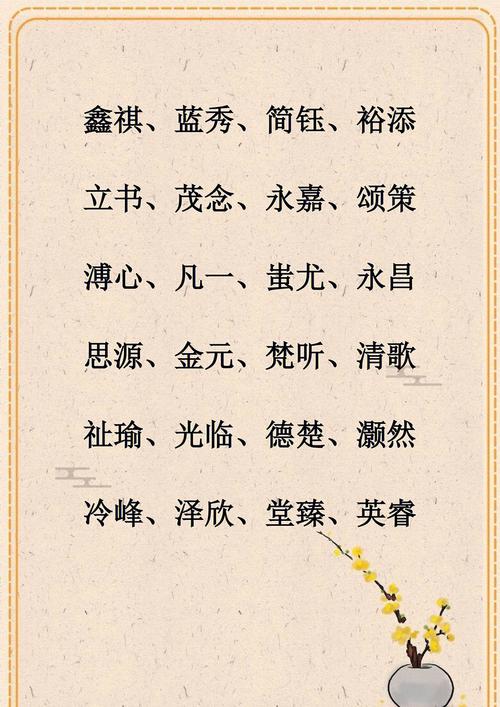 鑫祺、蓝秀、简钰、裕添
立书、茂念、永嘉、颂策
溥心、凡一、蚩尤、永昌
思源、金元、梵听、清歌
祉瑜、光临、德楚、灏然
冷峰、泽欣、堂臻、英睿